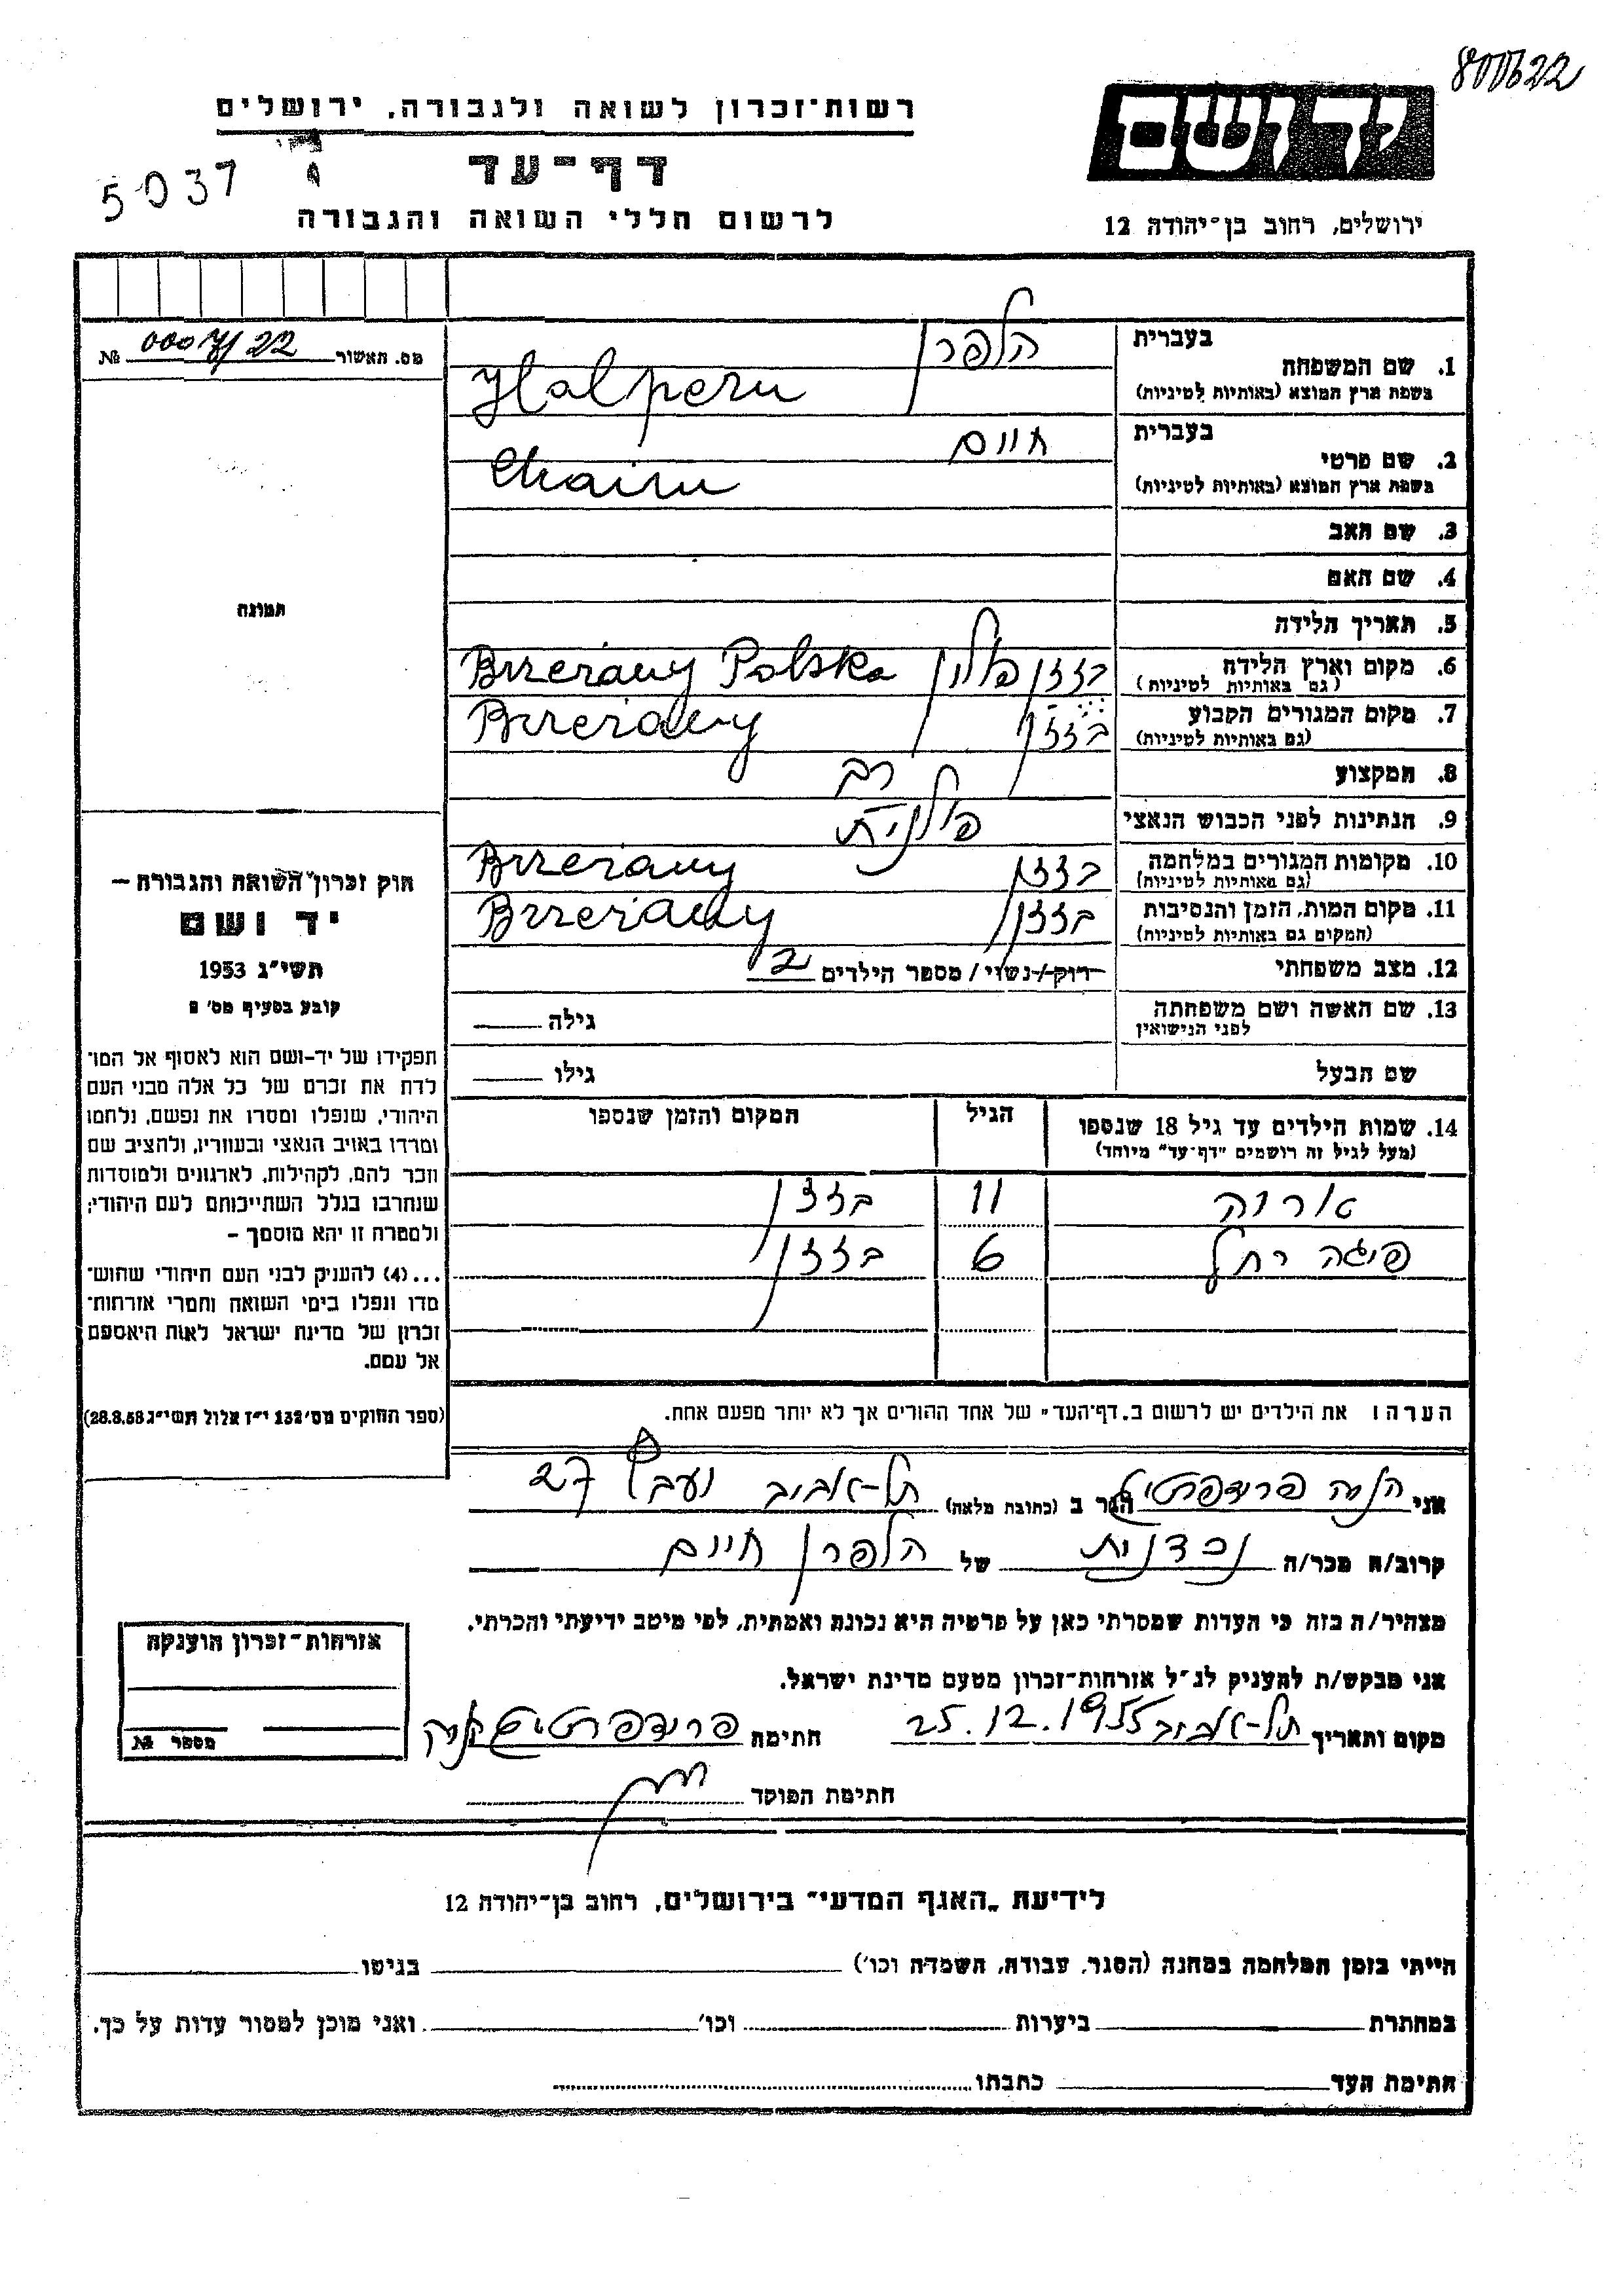 800622
יד ושם
רשות־זכרון לשואה ולגבורה, ירושלים
דף־עד
5037
לרשום חללי השואה והגבורה
ירושלים, רחוב בן־יהודה 12
מס. תאשור 22 № 
בעברית הלפרן
1. שם המשפחה
בשפת ארץ המוצא (באותיות לטיניות) Halpern
בעברית חיים
2. שם פרטי
בשפת ארץ המוצא (באותיות לטיניות) Chaim
3. שם האב
4. שם האם
תמונה
5. תאריך הלידה
6. מקום וארץ הלידה בזזן פולין Brzeżany Polska
(גם באותיות לטיניות)
7. מקום המגורים הקבוע בזזן Brzeżany
(גם באותיות לטיניות)
8. המקצוע רב
9. הנתינות לפני הכבוש הנאצי פולנית
10. מקומות המגורים במלחמה בזזן Brzeżany
(גם באותיות לטיניות)
11. מקום המות, הזמן והנסיבות בזזן Brzeżany
(המקום גם באותיות לטיניות)
12. מצב משפחתי רוק/נשוי/ מספר הילדים 2
13. שם האשה ושם משפחתה גילה
לפני הנישואין
שם הבעל גילו
14. שמות הילדים עד גיל 18 שנספו הגיל המקום והזמן שנספו
(מעל לגיל זה רושמים "דף־עד" מיוחד)
11 בזזן
פיגה רחל 6 בזזן
חוק זכרון השואה והגבורה —
יד ושם
תשי״ג 1953
קובע בסעיף מס׳ 
תפקידו של יד-ושם הוא לאסוף אל המו־
לדת את זכרם של כל אלה מבני העם
היהודי, שנפלו ומסרו את נפשם, נלחמו
ומרדו באויב הנאצי ובעוזריו, ולהציב שם
וזכר להם, לקהילות, לארגונים ולמוסדות
שנחרבו בגלל השתייכותם לעם היהודי;
ולמטרה זו יהא מוסמך —
...(4) להעניק לבני העם היהודי שהוש־
מדו ונפלו בימי השואה והמרי אזרחות־
זכרון של מדינת ישראל לאות היאספם
אל עמם.
(ספר החוקים מס׳ 132 י״ז אלול תשי״ג 28.8.53)
הערה: את הילדים יש לרשום ב„דף־העד״ של אחד ההורים אך לא יותר מפעם אחת.
אני פרידפרטיג הגר ב (כתובת מלאה) תל-אביב 27
קרוב/ה מכר/ה של הלפרן חיים
מצהיר/ה בזה כי העדות שמסרתי כאן על פרטיה היא נכונת ואמתית, לפי מיטב ידיעתי והכרתי.
אני מבקש/ת להעניק לנ״ל אזרחות־זכרון מטעם מדינת ישראל.
מקום ותאריך תל-אביב 25.12.1955 חתימה פרידפרטיג
חתימת הפוקד
אזרחות־זכרון הוענקה
מספר №
לידיעת „האגף המדעי״ בירושלים, רחוב בן־יהודה 12
הייתי בזמן המלחמה במחנה (הסגר, עבודה, השמדה וכו׳) בגיטו
במחתרת ביערות וכו׳ ואני מוכן למסור עדות על כך.
חתימת העד כתבתו